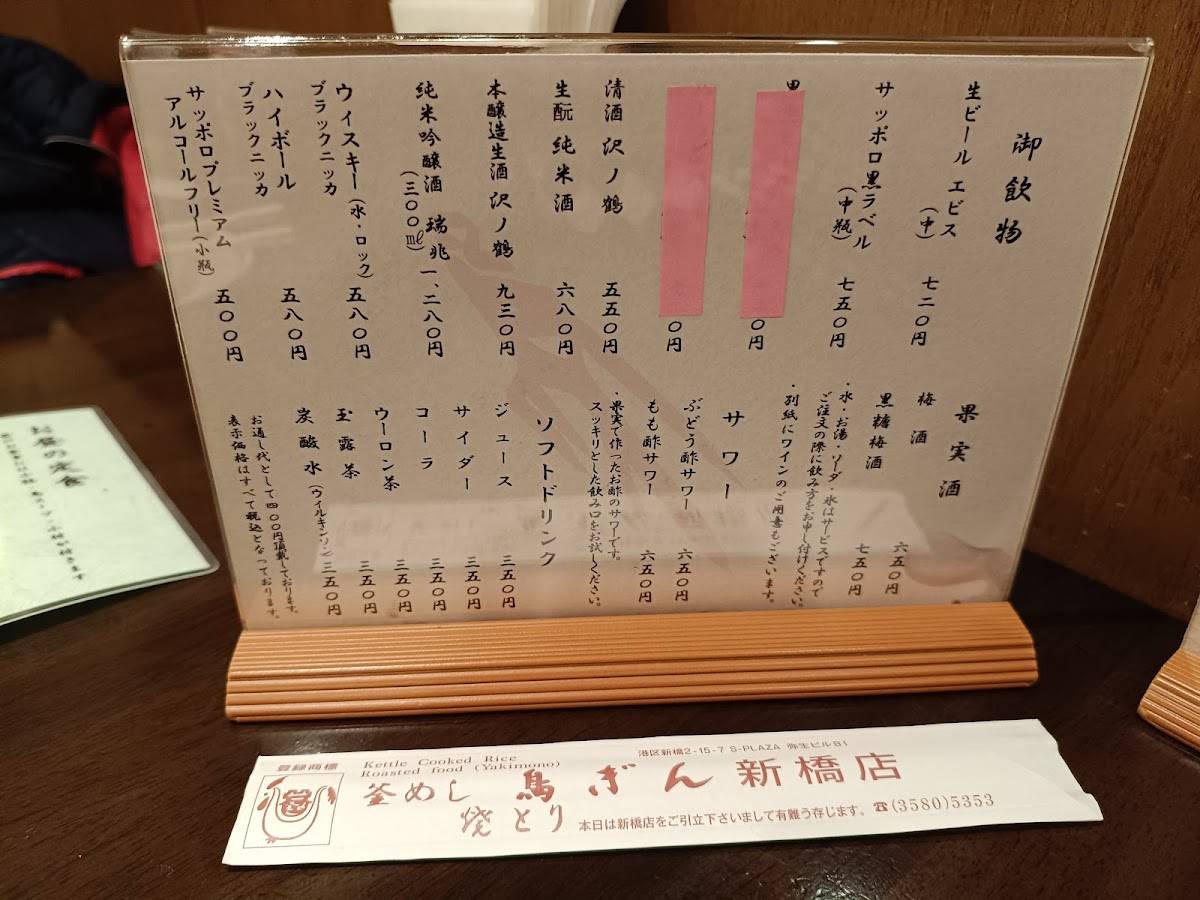 御飲物
生ビール エビス
(中) 七二〇円
サッポロ黒ラベル
(中瓶) 七五〇円
〇円
〇円
清酒 沢ノ鶴 五五〇円
生酛 純米酒 六八〇円
本醸造生酒 沢ノ鶴 九三〇円
純米吟醸酒 瑞兆
(三〇〇㎖) 一、二八〇円
ウィスキー(水・ロック) 五八〇円
ブラックニッカ
ハイボール 五八〇円
ブラックニッカ
サッポロプレミアム
アルコールフリー(小瓶) 五〇〇円
果実酒
梅酒 六五〇円
黒糖梅酒 七五〇円
・水・お湯・ソーダ・氷はサービスですので
ご注文の際に飲み方をお申し付けください。
・別紙にワインのご用意もございます。
サワー
ぶどう酢サワー 六五〇円
もも酢サワー 六五〇円
・果実で作ったお酢のサワーです。
スッキリとした飲み口をお試しください。
ソフトドリンク
ジュース 三五〇円
サイダー 三五〇円
コーラ 三五〇円
ウーロン茶 三五〇円
玉露茶 三五〇円
炭酸水(ウィルキンソン) 三五〇円
お通し代として四〇〇円頂戴しております。
表示価格はすべて税込となっております。
お昼の定食
登録商標
Kettle Cooked Rice
Roasted food (Yakimono)
釜めし
焼とり
鳥ぎん 新橋店
港区新橋2-15-7 S-PLAZA 弥生ビルB1
本日は新橋店をご引立下さいまして有難う存じます。☎(3580)5353